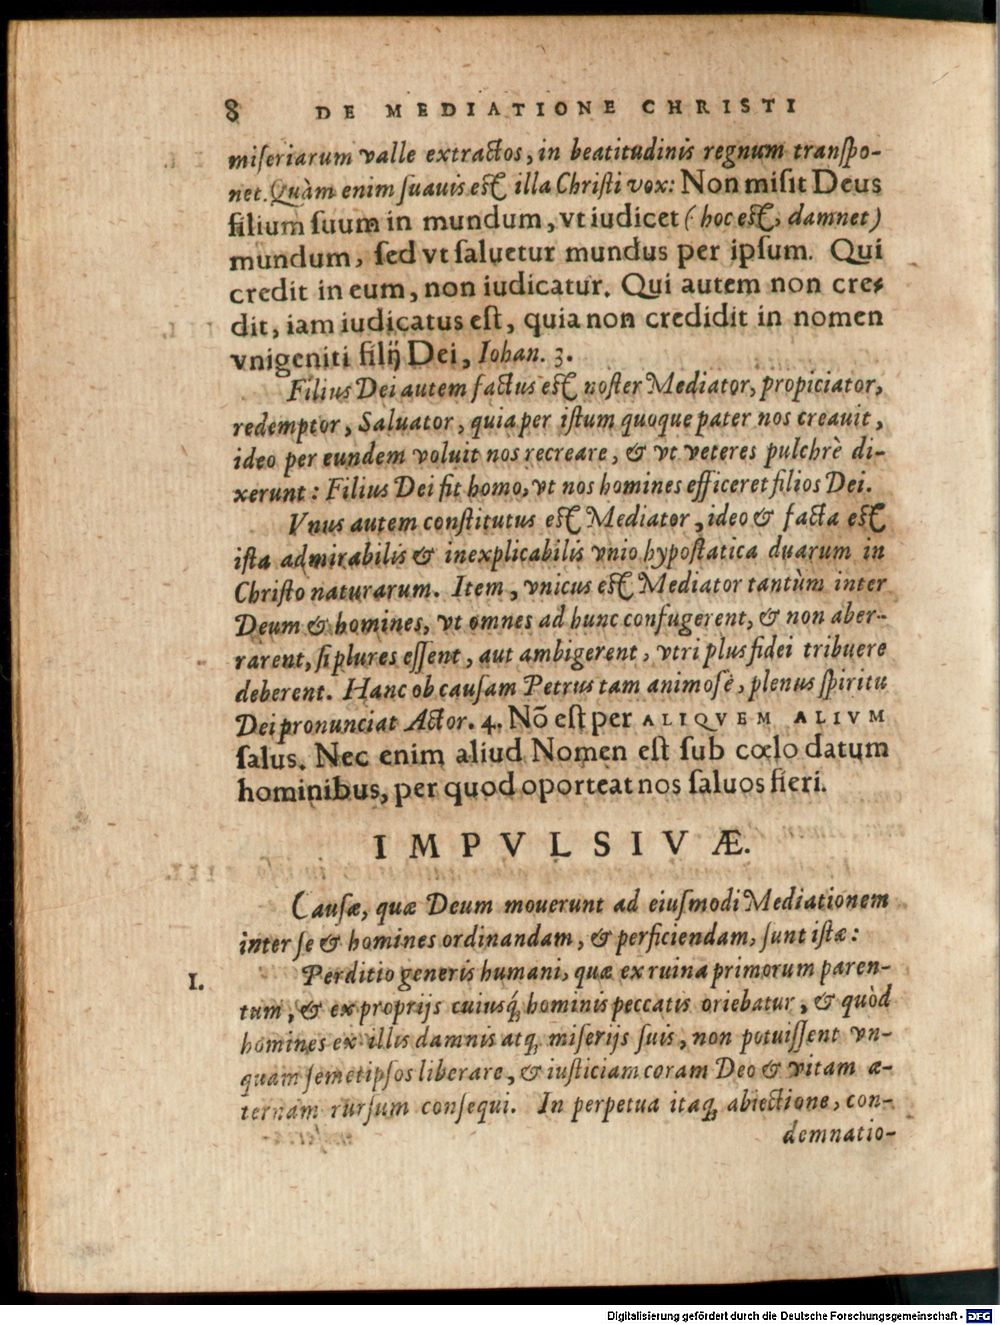 8 DE MEDIATIONE CHRISTI
miſeriarum valle extractos, in beatitudinis regnum tranſpo-
net. Quàm enim ſuauis eſt illa Chriſti vox: Non miſit Deus
filium ſuum in mundum, vt iudicet (hoc eſt, damnet)
mundum, ſed vt ſaluetur mundus per ipſum. Qui
credit in eum, non iudicatur. Qui autem non cre-
dit, iam iudicatus eſt, quia non credidit in nomen
vnigeniti filij Dei, Iohan. 3.
Filius Dei autem factus eſt noſter Mediator, propiciator,
redemptor, Saluator, quia per iſtum quoque pater nos creauit,
ideo per eundem voluit nos recreare, & vt veteres pulchrè di-
xerunt: Filius Dei fit homo, vt nos homines efficeret filios Dei.
Vnus autem conſtitutus eſt Mediator, ideo & facta eſt
iſta admirabilis & inexplicabilis vnio hypoſtatica duarum in
Chriſto naturarum. Item, vnicus eſt Mediator tantùm inter
Deum & homines, vt omnes ad hunc confugerent, & non aber-
rarent, ſi plures eſſent, aut ambigerent, vtri plus fidei tribuere
deberent. Hanc ob cauſam Petrus tam animoſè, plenus ſpiritu
Dei pronunciat Actor. 4. Nō eſt per ALIQVEM ALIVM
ſalus. Nec enim aliud Nomen eſt ſub cœlo datum
hominibus, per quod oporteat nos ſaluos fieri.
IMPVLSIVÆ.
Cauſæ, quæ Deum mouerunt ad eiuſmodi Mediationem
inter ſe & homines ordinandam, & perficiendam, ſunt iſtæ:
I. Perditio generis humani, quæ ex ruina primorum paren-
tum, & ex proprijs cuiusq́; hominis peccatis oriebatur, & quòd
homines ex illis damnis atq; miſerijs ſuis, non potuiſſent vn-
quam ſemetipſos liberare, & iuſticiam coram Deo & vitam æ-
ternam rurſum conſequi. In perpetua itaq; abiectione, con-
demnatio-
Digitalisierung gefördert durch die Deutsche Forschungsgemeinschaft - DFG